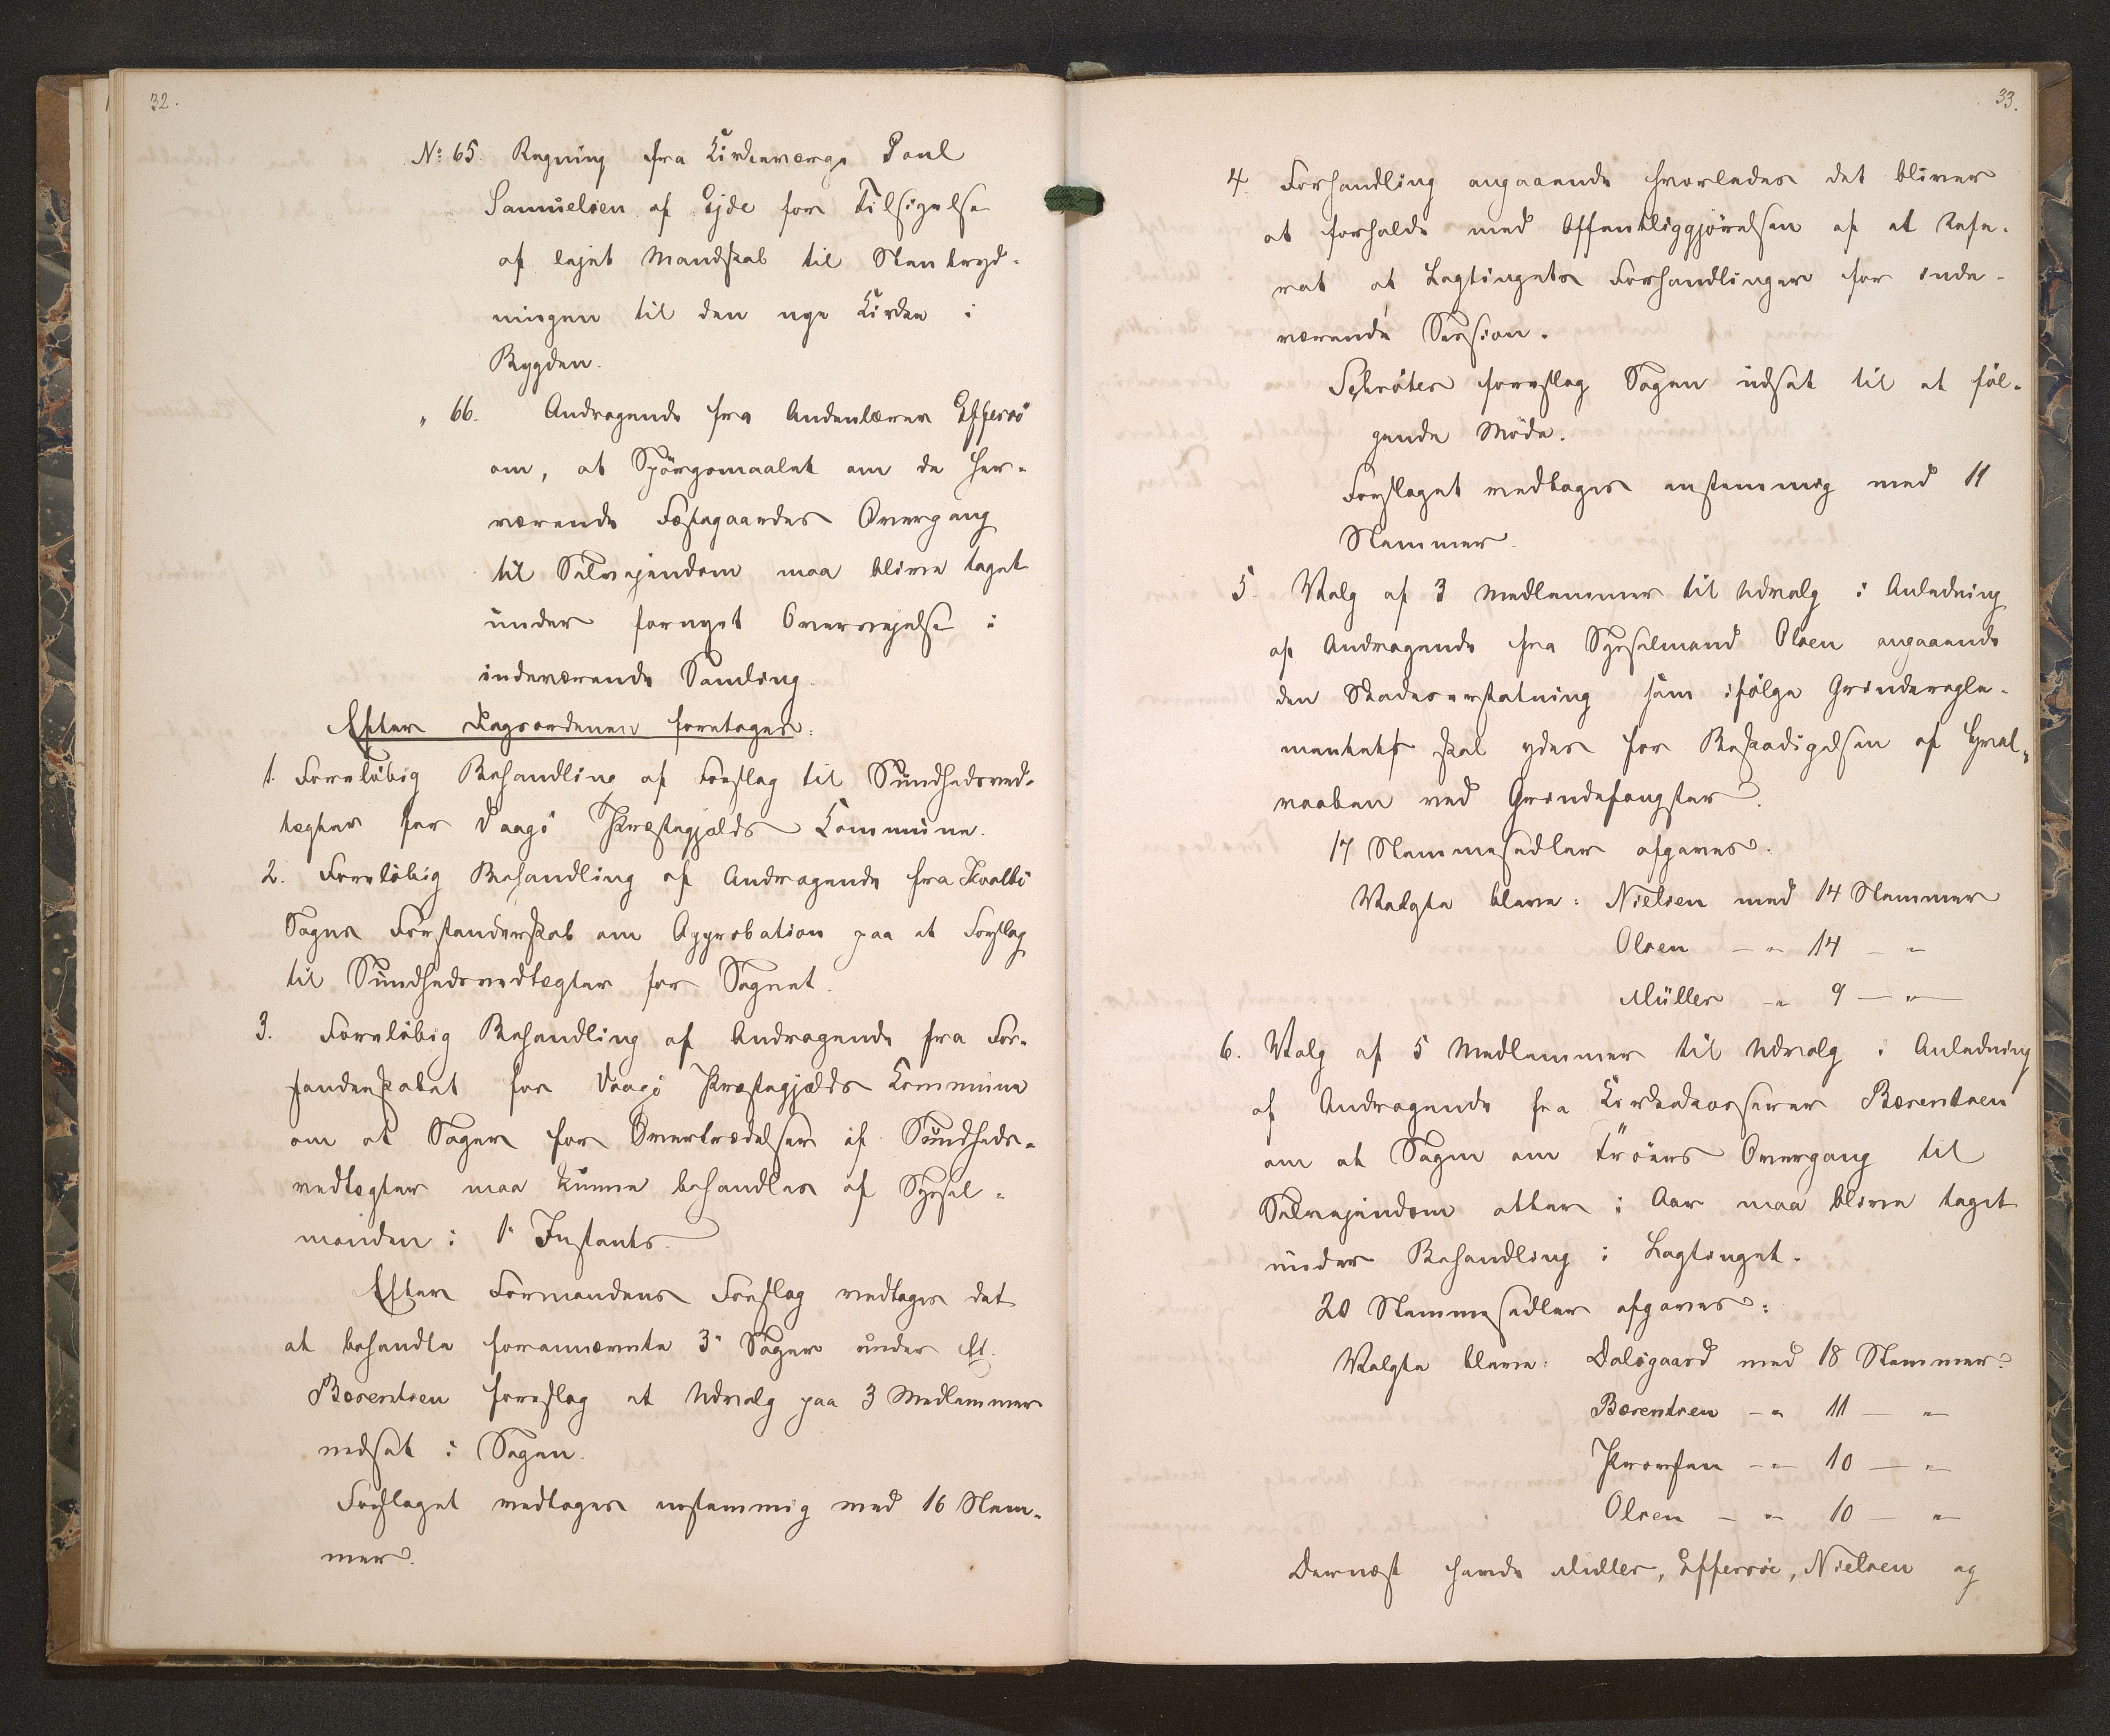 32.
№ 65. Regning fra Kirkeværge Poul
Samuelsen af Ejde for Tilsigelse
af lejet Mandskab til Stenbryd-
ningen til den nye Kirke i
Bygden.
„ 66. Andragende fra Andenlærer Effersö
om, at Spörgsmaalet om de her-
værende Fæstegaardes Overgang
til Selvejendom maa blive taget
under fornyet Overvejelse i
indeværende Samling.
Efter Dagsordenen foretoges:
1. Forelöbig Behandling af Forslag til Sundhedsved-
tægter for Vaagö Præstegjælds Kommune.
2. Forelöbig Behandling af Andragende fra Kvalbö
Sogns Forstanderskab om Approbation paa et Forslag
til Sundhedsvedtægter for Sognet.
3. Forelöbig Behandling af Andragende fra For-
standerskabet for Vaagö Præstegjælds Kommune
om at Sager for Overtrædelser af Sundheds-
vedtægter maa kunne behandles af Syssel-
manden i 1' Instants.
Efter Formandens Forslag vedtoges det
at behandle forannævnte 3' Sager under Et.
Bærentsen foreslog et Udvalg paa 3 Medlemmer
nedsat i Sagen.
Forslaget vedtoges enstemmig med 16 Stem-
mer.
33.
4. Forhandling angaaende hvorledes det bliver
at forholde med Offentliggjörelsen af et Refe-
rat af Lagtingets Forhandlinger for inde-
værende Session.
Schröter foreslog Sagen udsat til et föl-
gende Möde.
Forslaget vedtoges enstemmig med 11
Stemmer.
5. Valg af 3 Medlemmer til Udvalg i Anledning
af Andragende fra Sysselmand Olsen angaaende
den Skadeserstatning som ifölge Grinderegle-
mentet skal ydes for Beskadigelsen af Hval-
vaaben ved Grindefangster.
17 Stemmesedler afgaves.
Valgte bleve: Nielsen med 14 Stemmer
Olsen – „ 14 – „
Müller – „ 9 – „ –
6. Valg af 5 Medlemmer til Udvalg i Anledning
af Andragende fra Kirkekasserer Bærentsen
om at Sagen om Tröers Overgang til
Selvejendom atter i Aar maa blive taget
under Behandling i Lagtinget.
20 Stemmesedler afgaves:
Valgte bleve: Dalsgaard med 18 Stemmer.
Bærentsen – „ 11 – „
– „ 10 – „
Olsen – „ 10 – „
Dernæst havde Müller, Effersöe, Nielsen og